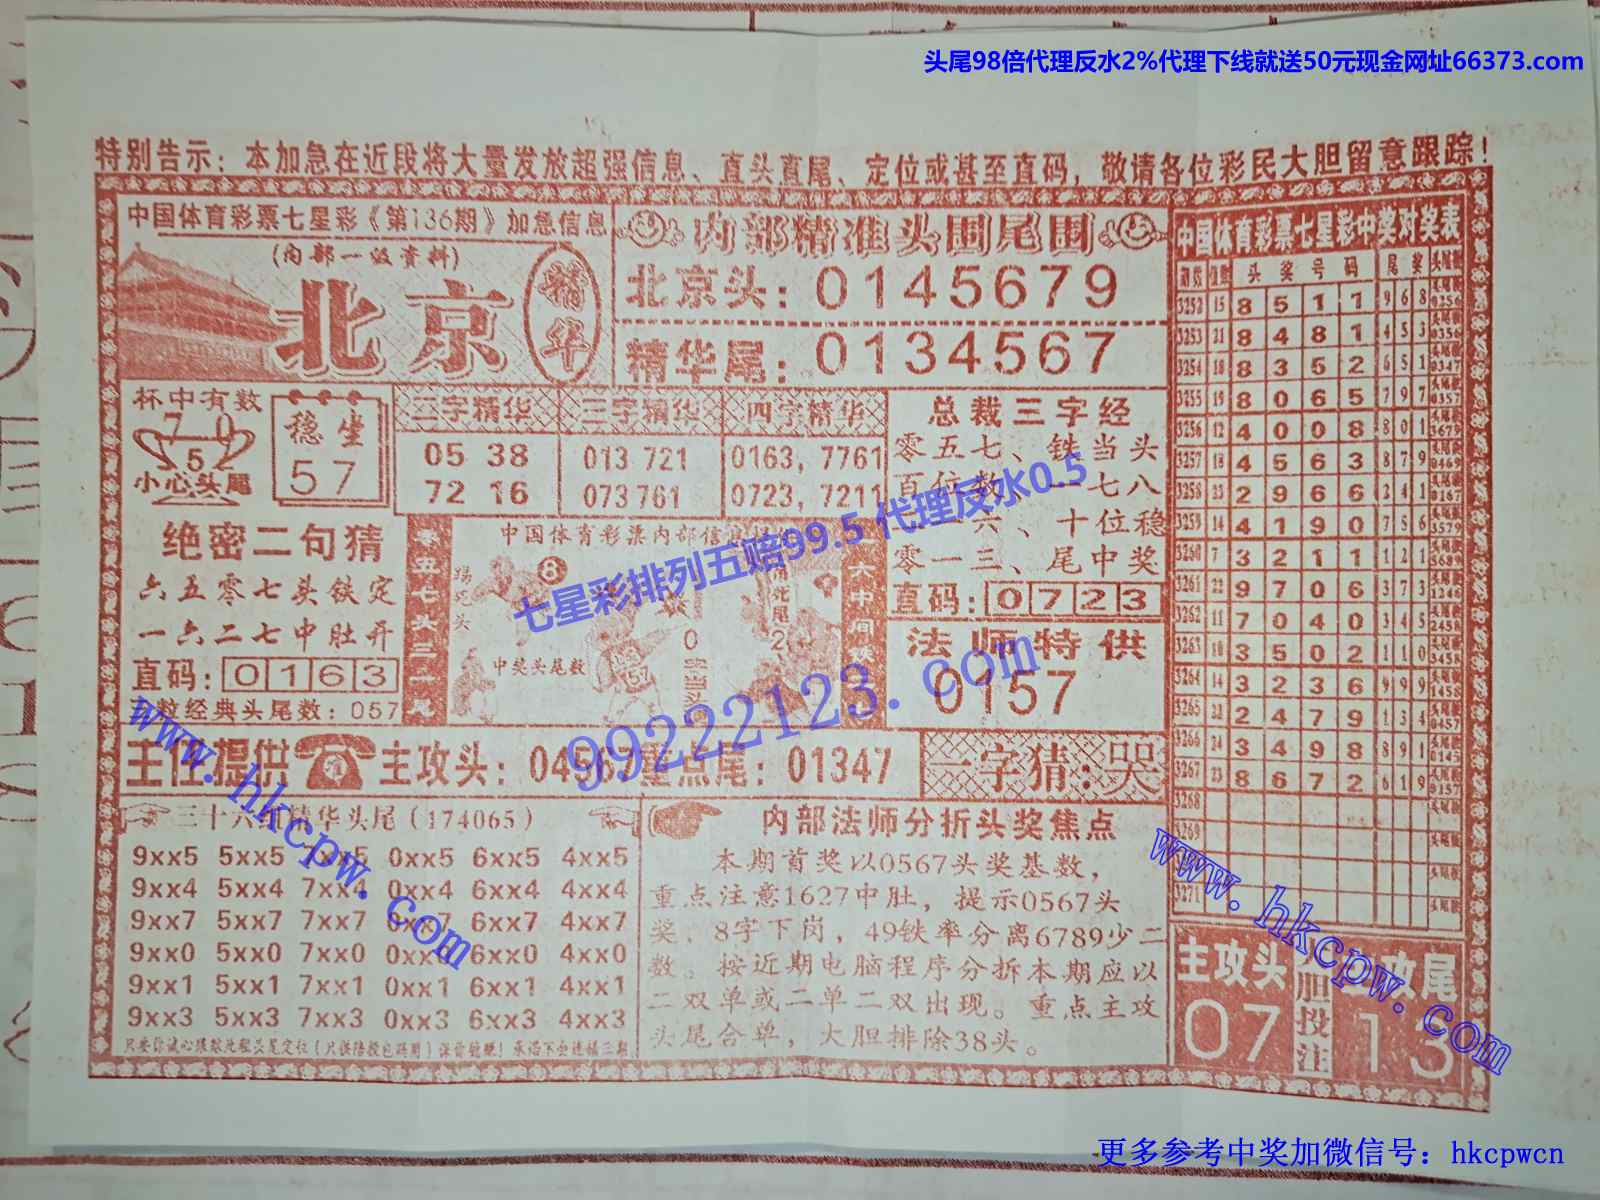 头尾98倍代理反水2%代理下线就送50元现金网址66373.com
特别告示：本加急在近段将大量发放超强信息、直头直尾、定位或甚至直码，敬请各位彩民大胆留意跟踪！
中国体育彩票七星彩《第136期》加急信息
(内部一级资料)
北京
精华
内部精准头围尾围
北京头：0145679
精华尾：0134567
杯中有数
7 0
5
小心头尾
稳坐
57
二字精华
05 38
72 16
三字精华
013 721
073 761
四字精华
0163, 7761
0723, 7211
总裁三字经
零五七、铁当头
百位数、一七八
六、十位稳
零一三、尾中奖
直码：0723
绝密二句猜
六五零七头铁定
一六二七中肚开
直码：0163
粒经典头尾数：057
零五七头三一尾
中国体育彩票内部信
8
中奖头尾数
0
2
57
六中间
法师特供
0157
主任提供 主攻头：04567 重点尾：01347
一字猜：哭
三十六组精华头尾（174065）
9xx5 5xx5 7xx5 0xx5 6xx5 4xx5
9xx4 5xx4 7xx4 0xx4 6xx4 4xx4
9xx7 5xx7 7xx7 0xx7 6xx7 4xx7
9xx0 5xx0 7xx0 0xx0 6xx0 4xx0
9xx1 5xx1 7xx1 0xx1 6xx1 4xx1
9xx3 5xx3 7xx3 0xx3 6xx3 4xx3
内部法师分折头奖焦点
本期首奖以0567头奖基数，
重点注意1627中肚，提示0567头
奖、8字下岗，49铁率分离6789少二
数。按近期电脑程序分拆本期应以
二双单或二单二双出现。重点主攻
头尾合单，大胆排除38头。
中国体育彩票七星彩中奖对奖表
期数 值数 头奖号码 尾奖 头尾数
3252 15 8 5 1 1 9 6 8 0256
3253 21 8 4 8 1 4 5 3 0356
3254 18 8 3 5 2 6 5 1 0347
3255 19 8 0 6 5 7 9 7 0357
3256 12 4 0 0 8 8 0 1 5679
3257 18 4 5 6 3 8 7 9 0469
3258 23 2 9 6 6 2 4 1 0167
3259 14 4 1 9 0 7 5 6 3579
3260 7 3 2 1 1 1 2 1 5689
3261 22 9 7 0 6 3 7 3 1246
3262 11 7 0 4 0 3 4 5 2458
3263 10 3 5 0 2 1 1 0 3458
3264 14 3 2 3 6 9 9 9 1458
3265 22 2 4 7 9 1 3 4 0457
3266 24 3 4 9 8 8 9 1 0145
3267 23 8 6 7 2 6 1 9 0157
3268
3269
3271
主攻头
07
胆投注
攻尾
13
七星彩排列五赔99.5 代理反水0.5
99222123.com
www.hkcpw.com
www.hkcpw.com
更多参考中奖加微信号：hkcpwcn